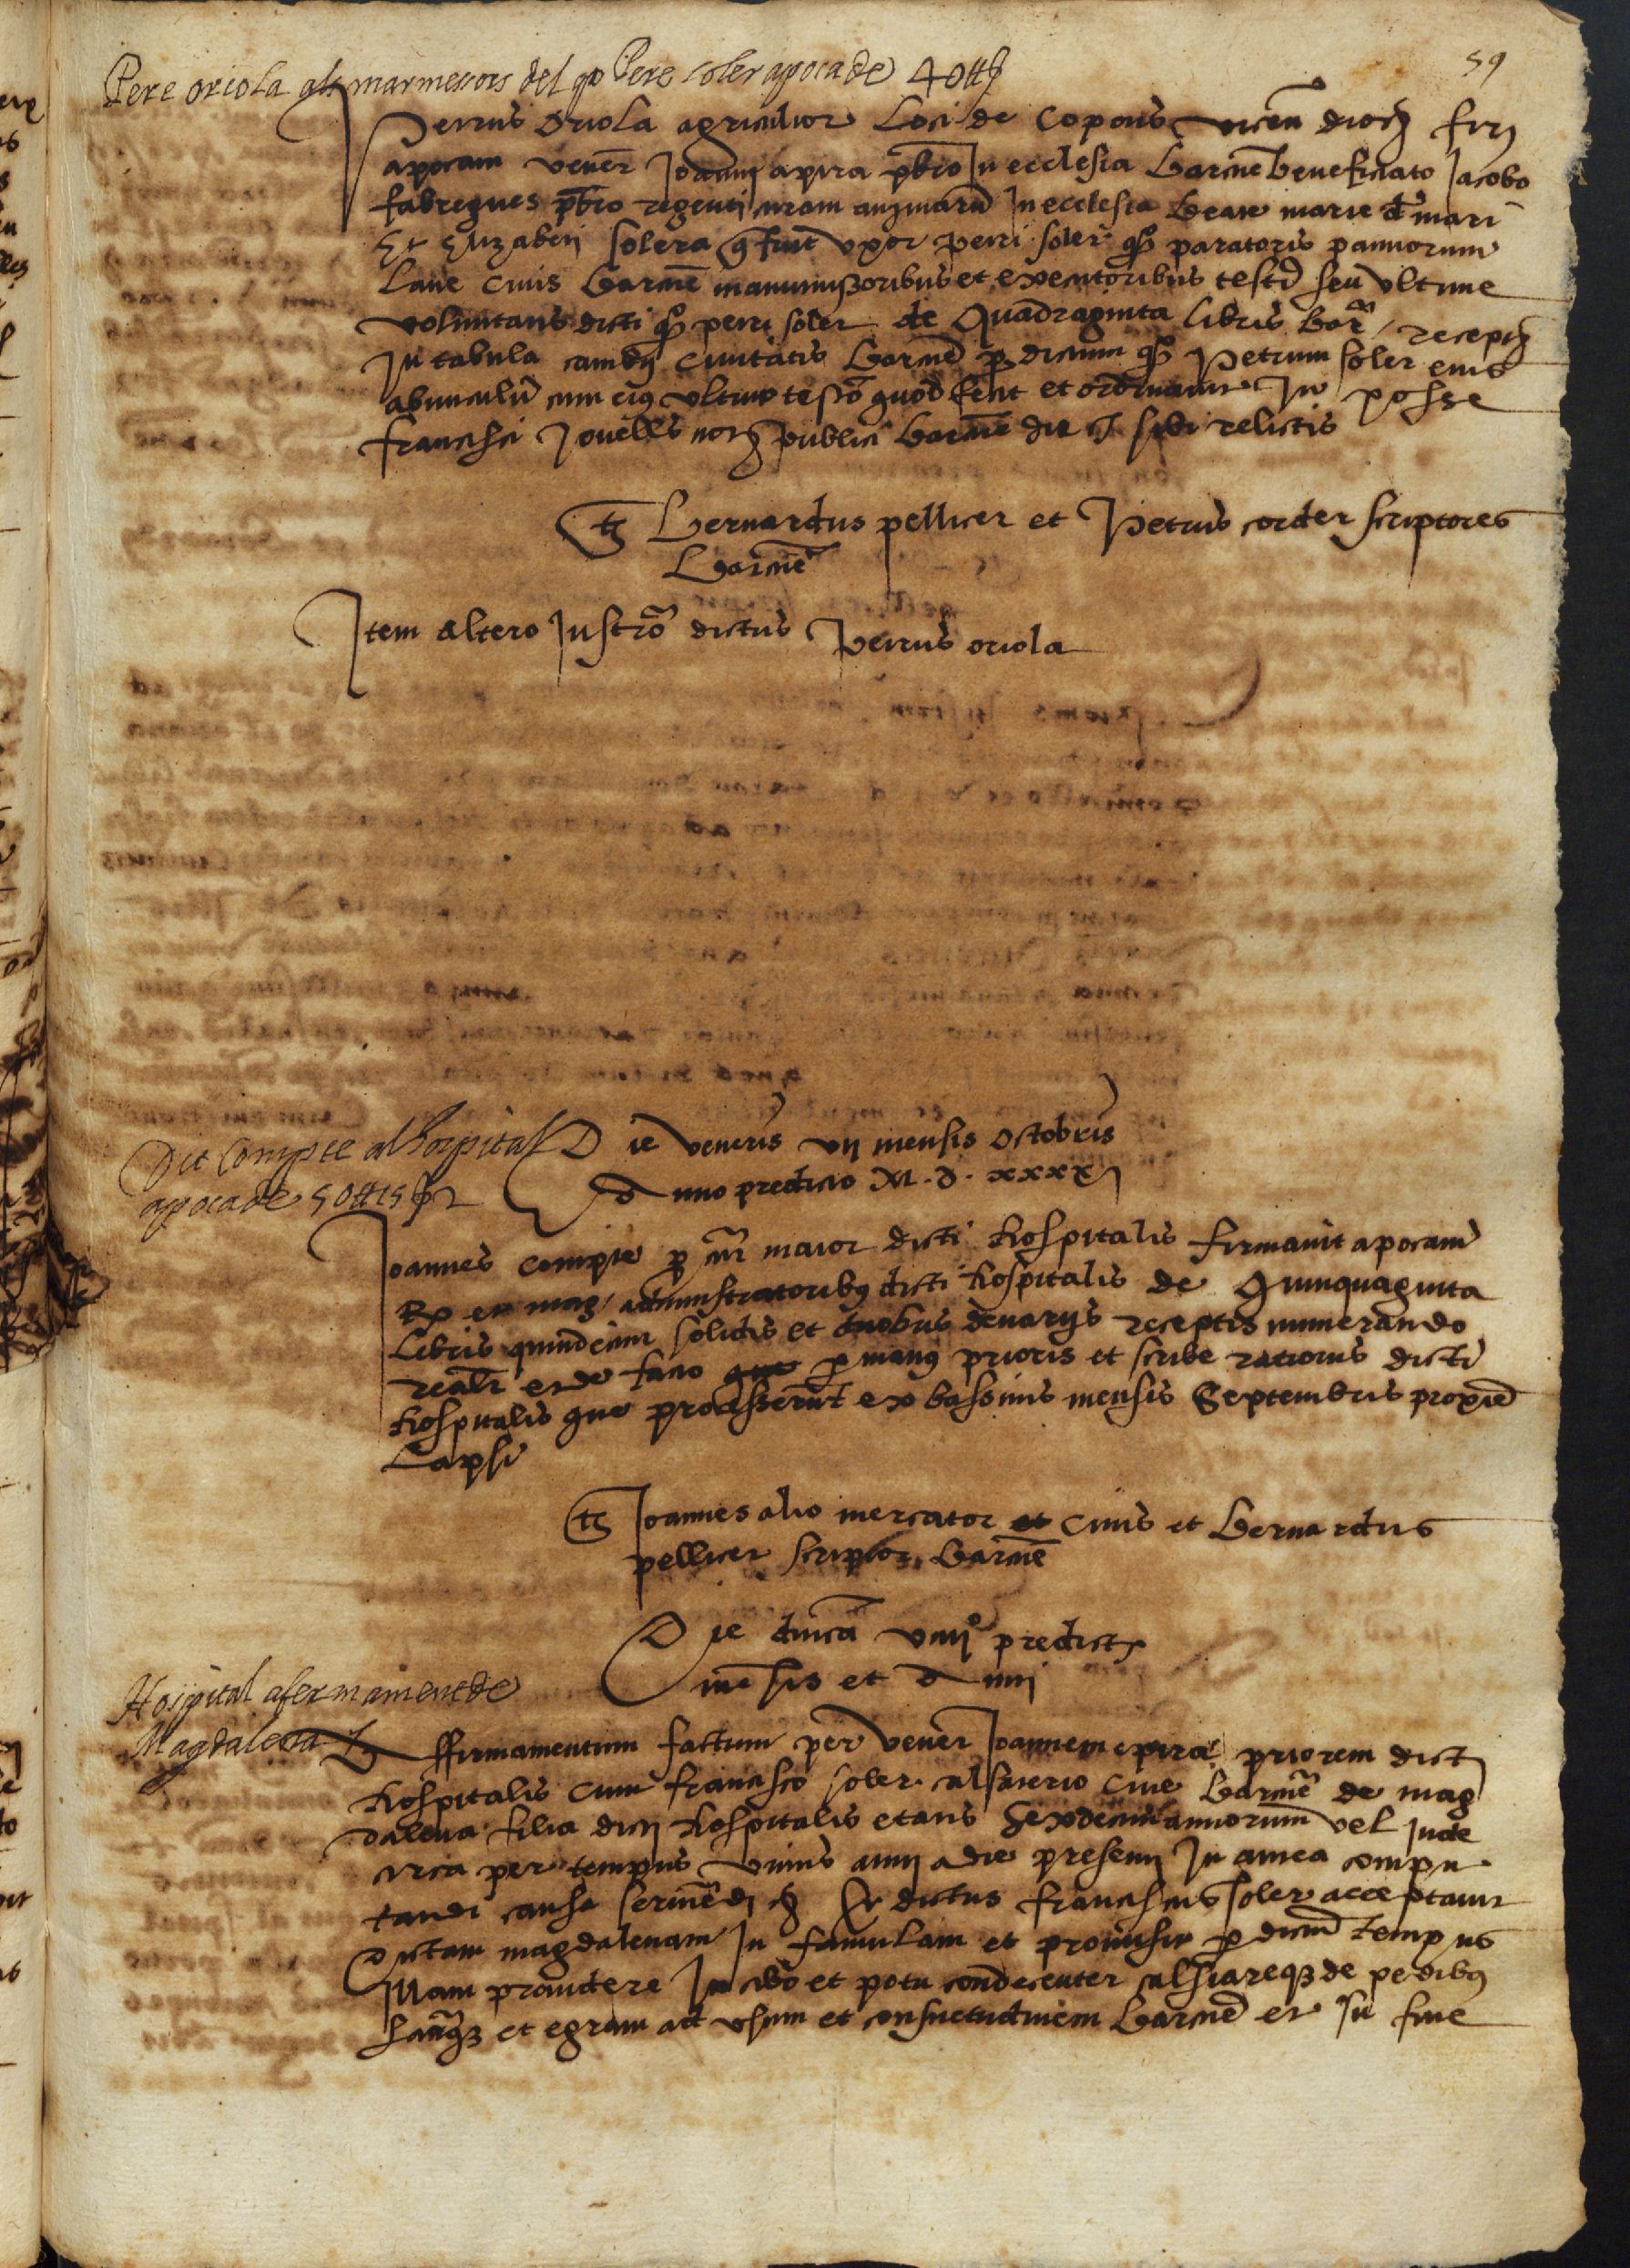 59
Pere oriola als marmessors del qº Pere soler apoca de 40 ₶
Petrus Oriola agricultor Loci de Copons vicen dioc firᵗ
apocam venerˡ Joanni apira pbro In ecclesia Barcne beneficiato Jacobo
fabregues pbro regenti curam animarū In ecclesia beate marie de mari
Et Elizabeti solera q̄ fuit vxor petri soler qº paratoris pannorum
Lane civis Barcne manumissoribus et executoribus testi seu vltime
voluntatis dicti qº petri soler de Quadraginta Libris barˢ receptis
In tabula cambij Civitatis Barcne p dictum qº Petrum soler eius
abunculū cum eius vltimo testo quod fecit et ordinavit In posse
francisci Jovells notⁱ publici Barcne die sibi relictis
ts Bernardus pellicer et Petrus corder scriptores
Barcne
Item altero Instrō dictus Petrus oriola
Dit Compte al hospital
apoca de 50 ₶ 15 ẞ 2
Die veneris vij mensis Octobris
Anno predicto M.D.xxxxj
Joannes compte p maior dicti hospitalis firmavit apocam
administratoribus dicti hospitalis de Quinquaginta
Libris quindecim solidis et duobus denarijs receptis numerando
realr et de facto p manus prioris et scribe rationis dicti
hospitalis que processerūt ex bassinis mensis Septembris proxime
Lapsi
ts Joannes alio mercator civis et Bernardus
pellicer scriptor Barcne
Die dnica viiijº predictˢ
mēsis et Anni
Hospital afermament de
Magdalena
Affirmamentum factum per Vener Joannem epira priorem dicti
hospitalis cum francisco soler calsaterio cive Barcne de mag
dalena filia dicti hospitalis etatis Sexdecim annorum vel inde
circa per tempus vnius anni a die presenti In antea compu
tandi causa serviēdi Et dictus franciscus soler acceptavit
dictam magdalenam In famulam et promisit p dictū tempus
Illam providere In cibo et potu condecenter calsiareqꝫ de pedibus
sanāqꝫ et egram ad vsum et consuetudinem Barcne et In fine